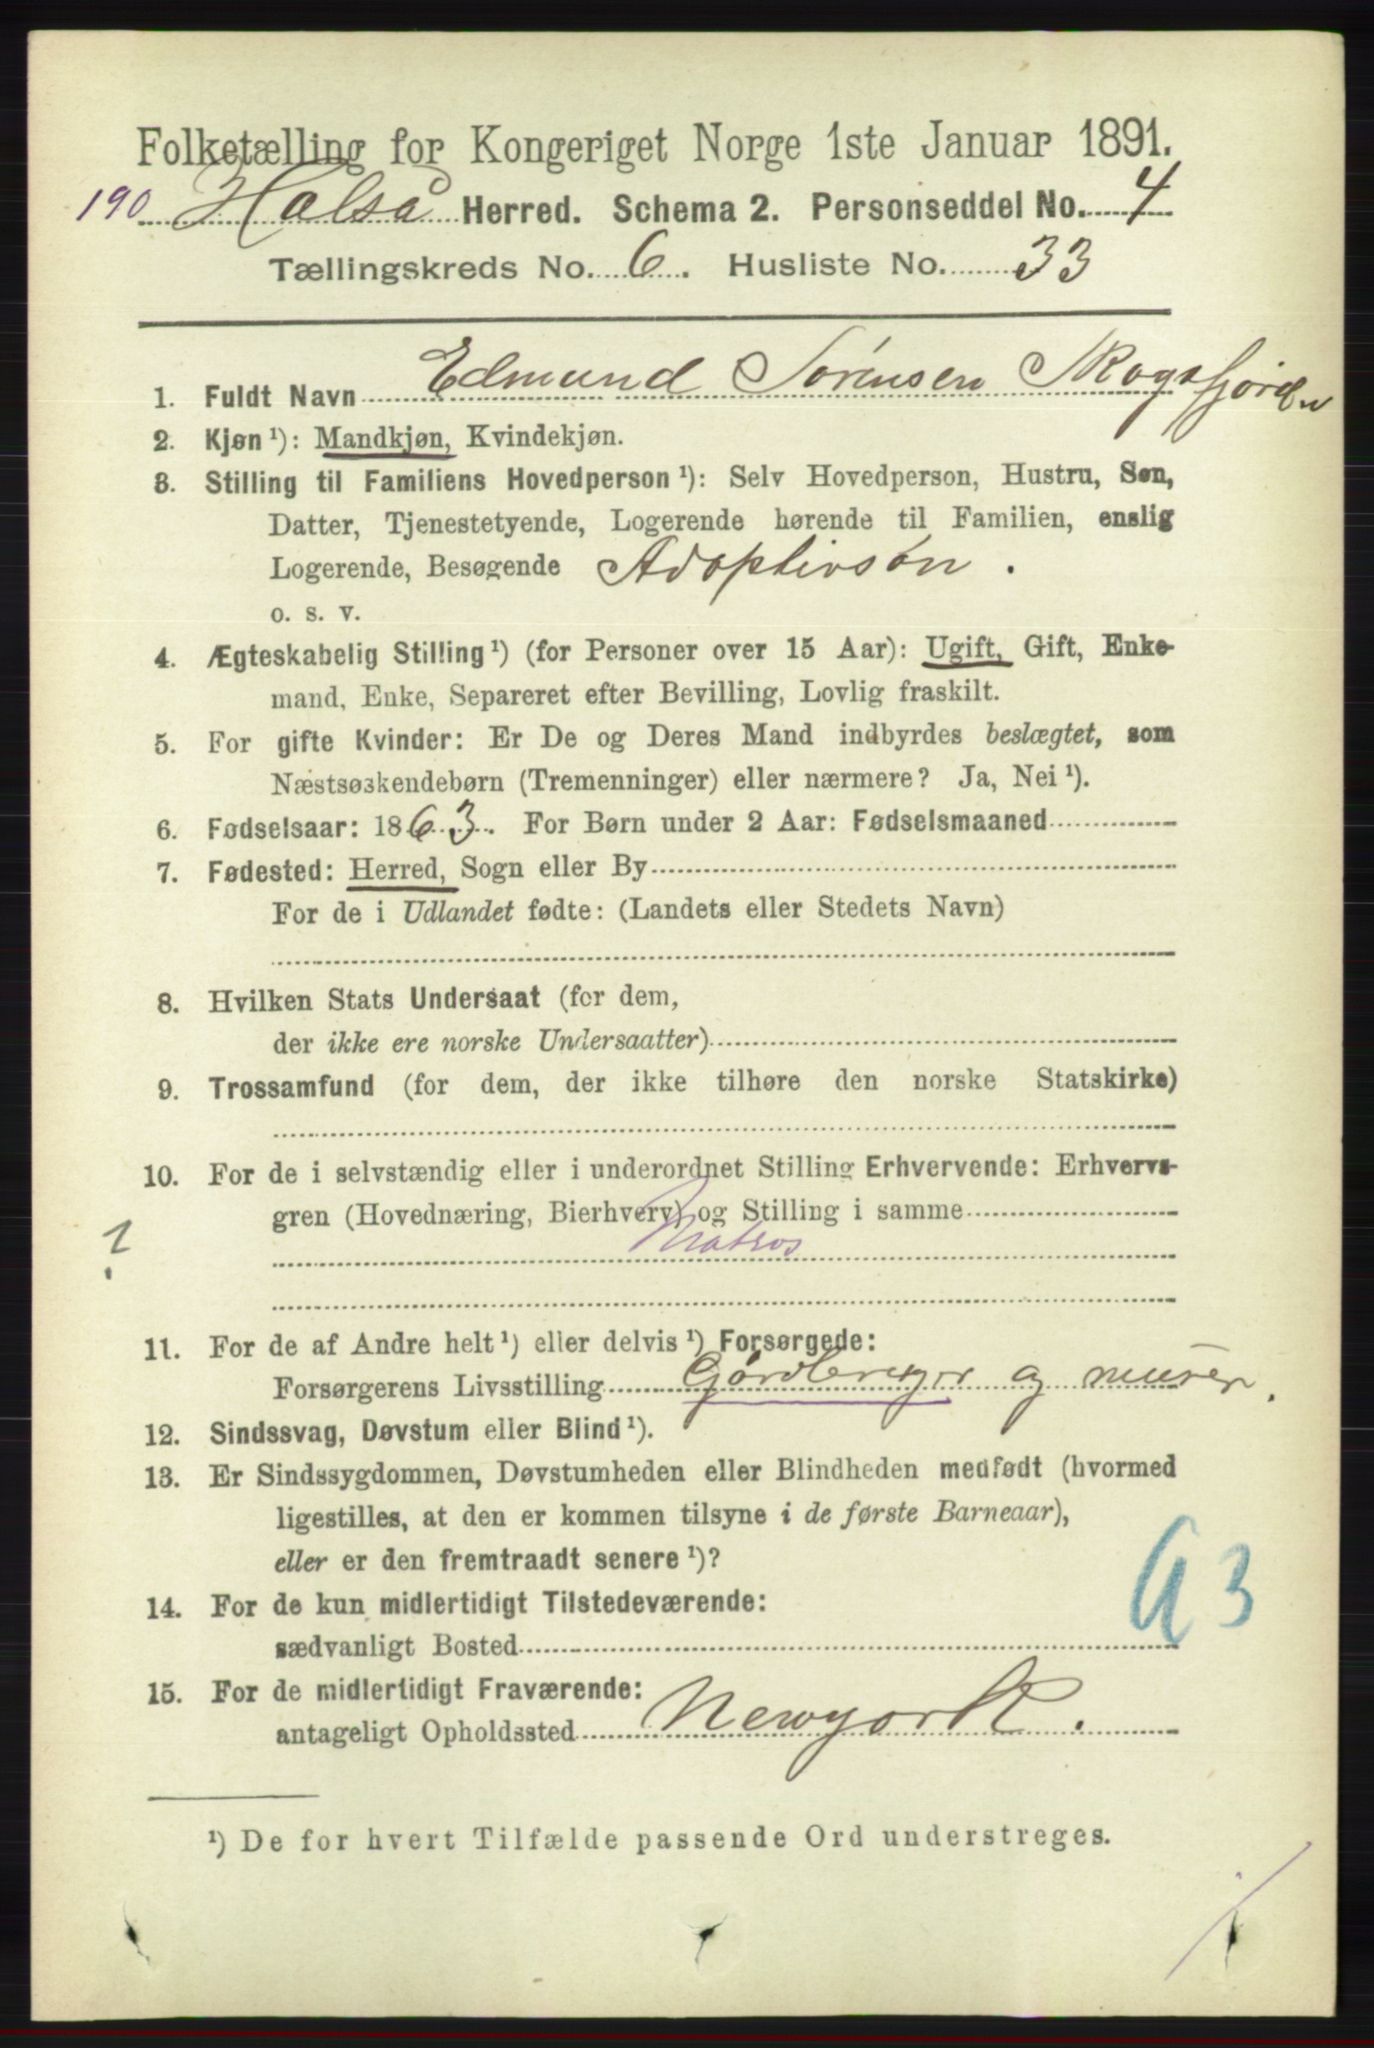 Folketælling for Kongeriget Norge 1ste Januar 1891.
190 Halså Herred. Schema 2. Personseddel No. 4
Tællingskreds No. 6. Husliste No. 33
1. Fuldt Navn Edmund Sørensen Skogsfjorden
2. Kjøn ¹): Mandkjøn, Kvindekjøn.
3. Stilling til Familiens Hovedperson ¹): Selv Hovedperson, Hustru, Søn,
Datter, Tjenestetyende, Logerende hørende til Familien, enslig
Logerende, Besøgende Adoptivsøn.
o. s. v.
4. Ægteskabelig Stilling ¹) (for Personer over 15 Aar): Ugift, Gift, Enke-
mand, Enke, Separeret efter Bevilling, Lovlig fraskilt.
5. For gifte Kvinder: Er De og Deres Mand indbyrdes beslægtet, som
Næstsøskendebørn (Tremenninger) eller nærmere? Ja, Nei ¹).
6. Fødselsaar: 1863. For Børn under 2 Aar: Fødselsmaaned
7. Fødested: Herred, Sogn eller By
For de i Udlandet fødte: (Landets eller Stedets Navn)
8. Hvilken Stats Undersaat (for dem,
der ikke ere norske Undersaatter)
9. Trossamfund (for dem, der ikke tilhøre den norske Statskirke)
10. For de i selvstændig eller i underordnet Stilling Erhvervende: Erhvervs-
gren (Hovednæring, Bierhverv) og Stilling i samme
? Matros
11. For de af Andre helt ¹) eller delvis ¹) Forsørgede:
Forsørgerens Livsstilling Gårdbruger og murer.
12. Sindssvag, Døvstum eller Blind ¹).
13. Er Sindssygdommen, Døvstumheden eller Blindheden medfødt (hvormed
ligestilles, at den er kommen tilsyne i de første Barneaar),
eller er den fremtraadt senere ¹)?
14. For de kun midlertidigt Tilstedeværende:
sædvanligt Bosted
15. For de midlertidigt Fraværende:
antageligt Opholdssted Newyork.
¹) De for hvert Tilfælde passende Ord understreges.